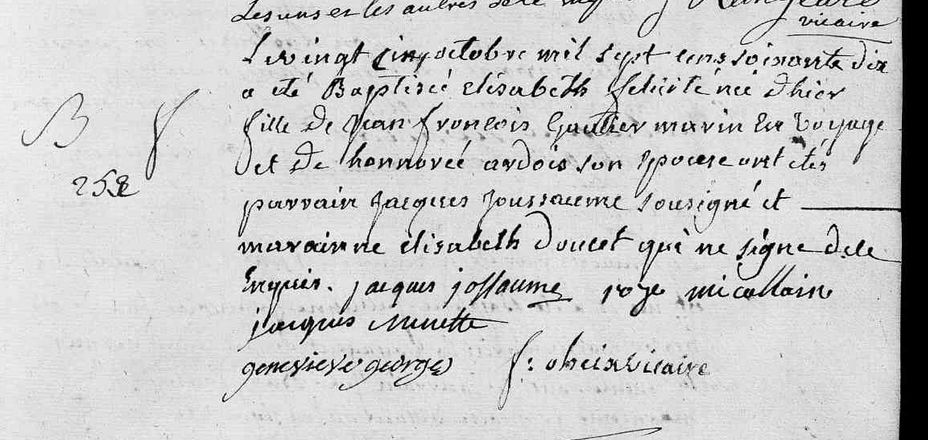 Les uns et les autres
vicaire
Le vingt cinq octobre mil sept cens soixante dix
a été Baptisée elisabeth felicité née d'hier
B f
fille de jean françois Gautier marin En Voyage
et De honnoreé ardois son Epouse ont étés
258
parrain jacques joussaume sousigné et
marainne elisabeth Doucet qui ne signe de ce
Enquis. jacques jossaume roze micallain
jacques
genevieve george f: oheix vicaire